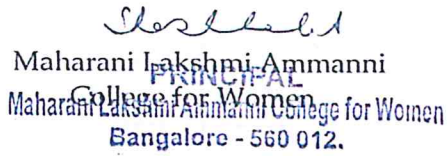 Maharani Lakshmi Ammanni
PRINCIPAL
College for Women
Maharani Lakshmi Ammanni College for Women
Bangalore - 560 012.